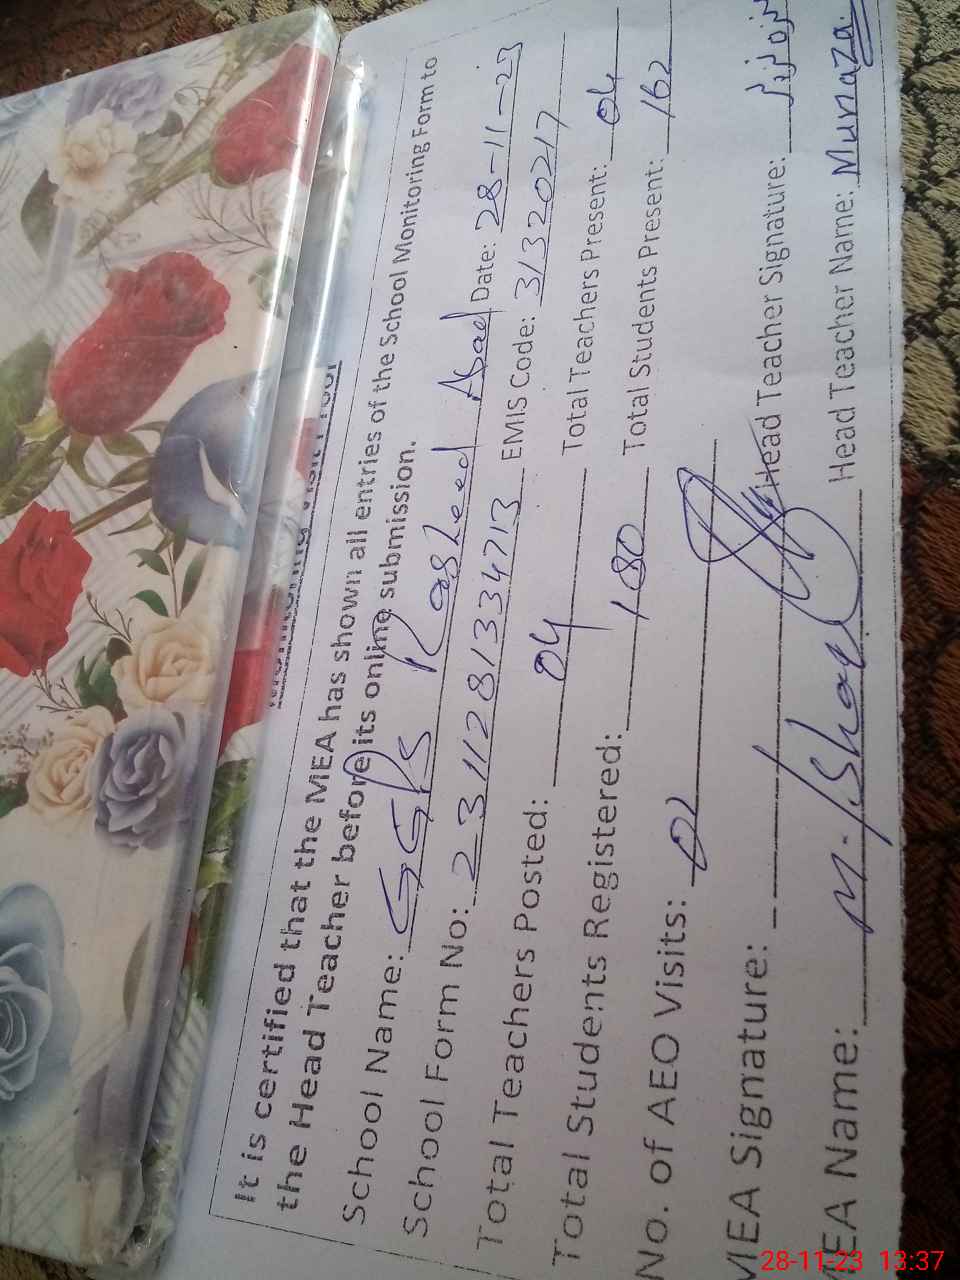 Monitoring Visit Proof
It is certified that the MEA has shown all entries of the School Monitoring Form to
the Head Teacher before its online submission.
School Name: GGPS Rasheed Abad Date: 28-11-23
School Form No: 2311281334713 EMIS Code: 31320217
Total Teachers Posted: 04 Total Teachers Present: 04
Total Students Registered: 180 Total Students Present: 162
No. of AEO Visits: 02
MEA Signature: Head Teacher Signature:
MEA Name: M. Ishaq Head Teacher Name: Munaza
28-11-23 13:37